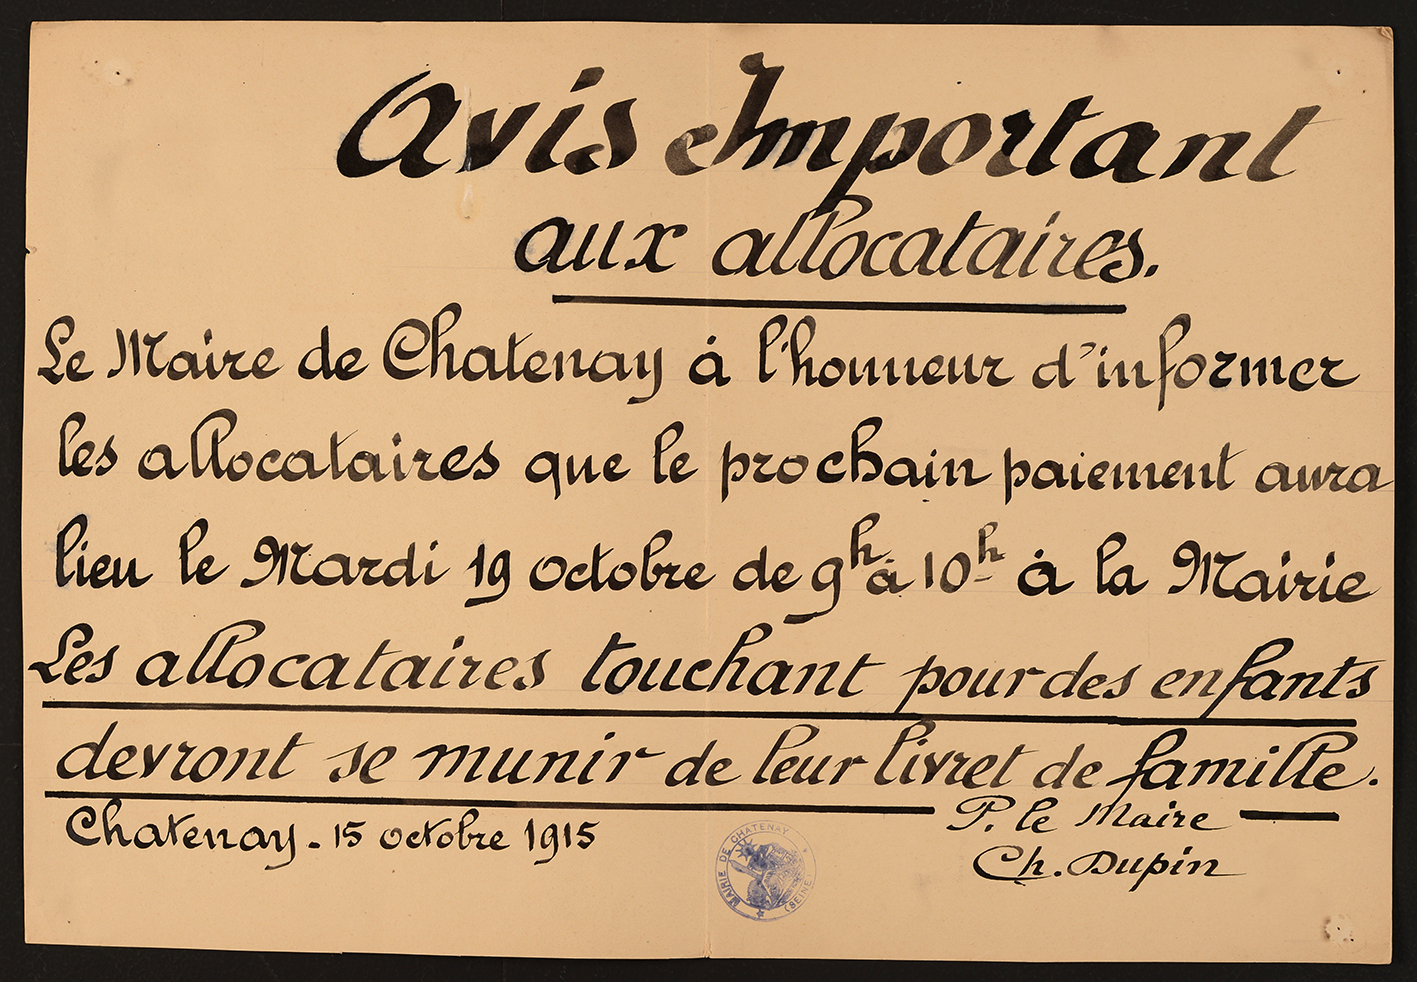 Avis Important
aux allocataires.
Le Maire de Chatenay à l'honneur d'informer
les allocataires que le prochain paiement aura
lieu le Mardi 19 octobre de 9h à 10h à la Mairie
Les allocataires touchant pour des enfants
devront se munir de leur livret de famille.
P. le Maire
Chatenay - 15 octobre 1915
Ch. Dupin
MAIRIE DE CHATENAY
(SEINE)